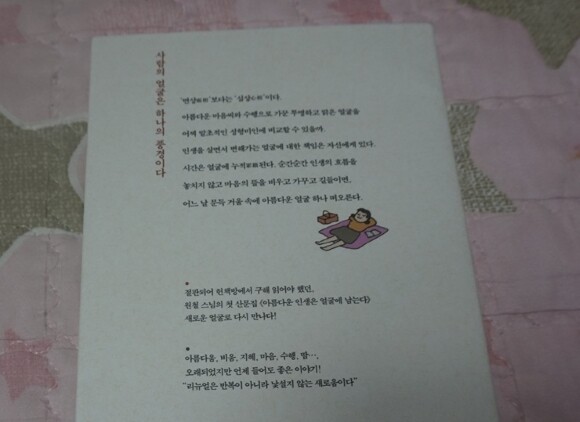 사람의 얼굴은 하나의 풍경이다
'면상面相'보다는 '심상心相'이다.
아름다운 마음씨와 수행으로 가꾼 투명하고 맑은 얼굴을
어찌 말초적인 성형미인에 비교할 수 있을까.
인생을 살면서 변해가는 얼굴에 대한 책임은 자신에게 있다.
시간은 얼굴에 누적累積된다. 순간순간 인생의 흐름을
놓치지 않고 마음의 뜰을 비우고 가꾸고 길들이면,
어느 날 문득 거울 속에 아름다운 얼굴 하나 떠오른다.
절판되어 헌책방에서 구해 읽어야 했던,
원철 스님의 첫 산문집 《아름다운 인생은 얼굴에 남는다》
새로운 얼굴로 다시 만나다!
아름다움, 비움, 지혜, 마음, 수행, 밥…,
오래되었지만 언제 들어도 좋은 이야기!
"리뉴얼은 반복이 아니라 낯설지 않는 새로움이다"